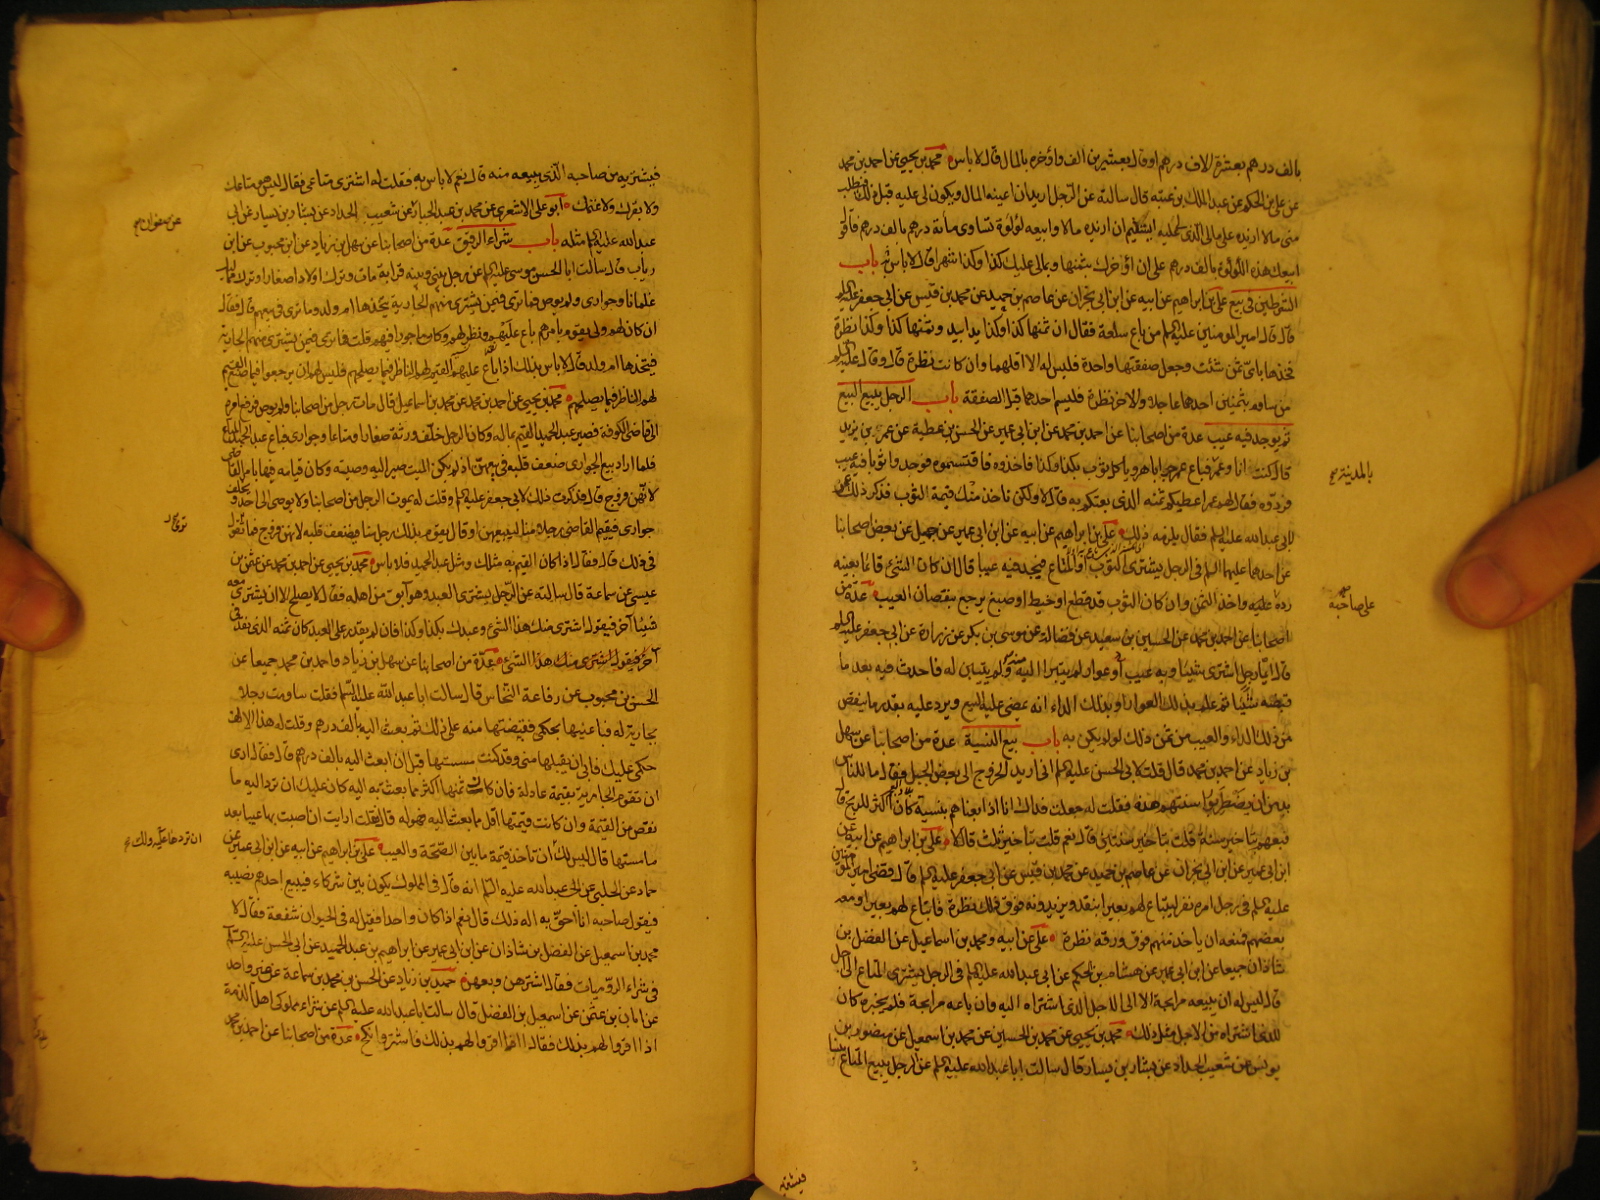 بالف درهم بعشرة الاف درهم اوقال بعشرين الف واؤخره بالمال قال لا باس محمد بن يحيى عن احمد بن محمد
عن علي بن الحكم عن عبد الملك بن عتبة قال سالته عن الرجل اريد ان اعينه المال ويكون لي عليه قبل ذلك فيطلب
مني مالا ازيده على مالي الذي لي عليه ايستقيم ان ازيده مالا وابيعه لؤلؤة تساوي مأة درهم بالف درهم فاقول
ابيعك هذه اللؤلؤة بالف درهم على ان اؤخرك بثمنها وبمالي عليك كذا وكذا شهرا قال لا باس به باب
الشرطين في بيع علي بن ابراهيم عن ابيه عن ابن ابي نجران عن عاصم بن حميد عن محمد بن قيس عن ابي جعفر عليه السلم
قال قال امير المومنين عليه السلم من باع سلعة فقال ان ثمنها كذا وكذا يدا بيد وثمنها كذا وكذا نظرة
فخذها باي ثمن شئت وجعل صفقتها واحدة فليس له الا اقلهما وان كانت نظرة قال وقال عليه السلم
من ساوم بثمنين احدهما عاجلا والاخر نظرة فليسم احدهما قبل الصفقة باب الرجل يبيع البيع
ثم يوجد فيه عيب عدة من اصحابنا عن احمد بن محمد عن ابن ابي عمير عن الحسن بن عطية عن عمر بن يزيد
قال كنت انا وعمر فباع عمر جرابا هرويا كل ثوب بكذا وكذا فاخذوه فاقتسموه فوجدوا ثوبا فيه عيب
فردوه فقال لهم عمر اعطيكم ثمنه الذي بعتكم به قال لا ولكن ناخذ منك قيمة الثوب فذكر ذلك عمر
لابي عبد الله عليه السلم فقال يلزمه ذلك علي بن ابراهيم عن ابيه عن ابن ابي عمير عن جميل عن بعض اصحابنا
عن احدهما عليهما السلم في الرجل يشتري الثوب او المتاع فيجد فيه عيبا قال ان كان الشئ قائما بعينه
رده عليه واخذ الثمن وان كان الثوب قد قطع او خيط او صبغ يرجع بنقصان العيب عدة من
اصحابنا عن احمد بن محمد عن الحسين بن سعيد عن فضالة عن موسى بن بكر عن زرارة عن ابي جعفر عليه السلم
قال ايما رجل اشترى شيئا وبه عيب او عوار ولم يتبرا اليه ولم يتبين له فاحدث فيه بعد ما
قبضه شيئا ثم علم بذلك العوار او بذلك الداء انه يمضي عليه البيع ويرد عليه بقدر ما ينقص
من ذلك الداء والعيب من ثمن ذلك لو لم يكن به باب بيع النسية عدة من اصحابنا عن سهل
بن زياد عن احمد بن محمد قال قلت لابي الحسن عليه السلم اني اريد الخروج الى بعض الجبل فقال ما للناس
بد من ان يضطربوا سنتهم هذه فقلت له جعلت فداك انا اذا بعناهم بنسية كان اكثر للربح قال
فبعهم بتاخير سنة قلت بتاخير سنتين قال نعم قلت بتاخير ثلث قال لا علي بن ابراهيم عن ابيه عن
ابن ابي عمير عن ابن ابي نجران عن عاصم بن حميد عن محمد بن قيس عن ابي جعفر عليه السلم قال قضى امير المومنين
عليه السلم في رجل امره نفر ليبتاع لهم بعيرا بنقد ويزيدونه فوق ذلك نظرة فابتاع لهم بعيرا ومعه
بعضهم فمنعه ان ياخذ منهم فوق ورقه نظرة علي عن ابيه ومحمد بن اسماعيل عن الفضل بن
شاذان جميعا عن ابن ابي عمير عن هشام بن الحكم عن ابي عبد الله عليه السلم في الرجل يشتري المتاع الى اجل
قال ليس له ان يبيعه مرابحة الا الى الاجل الذي اشتراه اليه وان باعه مرابحة فلم يخبره كان
للذي اشتراه من الاجل مثل ذلك محمد بن يحيى عن محمد بن الحسين عن محمد بن اسمعيل عن منصور بن
يونس عن شعيب الحداد عن بشار بن يسار قال سالت ابا عبد الله عليه السلم عن الرجل يبيع المتاع بنسا
فيشتريه
بالمدينة
على صاحبه
فيشتريه من صاحبه الذي يبيعه منه قال نعم لا باس به فقلت له اشترى متاعي فقال ليس هو متاعك
ولا بقرك ولا غنمك ابو علي الاشعري عن محمد بن عبد الجبار عن شعيب الحداد عن بشار بن يسار عن ابي
عبد الله عليه السلم مثله باب شراء الرقيق عدة من اصحابنا عن سهل بن زياد عن ابن محبوب عن ابن
رياب قال سالت ابا الحسن موسى عليه السلم عن رجل بيني وبينه قرابة مات وترك اولادا صغارا وترك مماليك
غلمانا وجواري ولم يوص فما ترى فيمن يشتري منهم الجارية يتخذها ام ولد وما ترى في بيعهم قال فقال
ان كان لهم ولي يقوم بامرهم باع عليهم ونظر لهم وكان ماجورا فيهم قلت فما ترى فيمن يشتري منهم الجارية
فيتخذها ام ولد قال لا باس بذلك اذا باع عليهم القيم لهم الناظر فيما يصلحهم فليس لهم ان يرجعوا فيما صنع القيم
لهم الناظر فيما يصلحهم محمد بن يحيى عن احمد بن محمد عن محمد بن اسماعيل قال مات رجل من اصحابنا ولم يوص فرفع امره
الى قاضي الكوفة فصير عبد الحميد القيم بماله وكان الرجل خلف ورثة صغارا ومتاعا وجواري فباع عبد الحميد المتاع
فلما اراد بيع الجواري ضعف قلبه في بيعهن اذ لم يكن الميت صير اليه وصيته وكان قيامه فيها بامر القاضي
لانهن فروج قال فذكرت ذلك لابي جعفر عليه السلم وقلت له يموت الرجل من اصحابنا ولا يوصي الى احد ويخلف
جواري فيقيم القاضي رجلا منا ليبيعهن او قال يقوم بذلك رجل منا فيضعف قلبه لانهن فروج فما ترى
في ذلك قال فقال اذا كان القيم به مثلك ومثل عبد الحميد فلا باس محمد بن يحيى عن احمد بن محمد عن عثمن بن
عيسى عن سماعة قال سالته عن الرجل يشتري العبد وهو آبق من اهله فقال لا يصلح الا ان يشتري معه
شيئا آخر فيقول اشتري منك هذا الشئ وعبدك بكذا وكذا فان لم يقدر على العبد كان ثمنه الذي نقد في
عدة من اصحابنا عن سهل بن زياد واحمد بن محمد جميعا عن
الحسن بن محبوب عن رفاعة النخاس قال سالت ابا عبد الله عليه السلم فقلت ساومت رجلا
بجارية له فباعنيها بحكمي فقبضتها منه على ذلك ثم بعثت اليه بالف درهم وقلت له هذا الالف
حكمي عليك فابى ان يقبلها مني وقد كنت مسستها قبل ان ابعث اليه بالف درهم قال فقال ارى
ان تقوم الجارية بقيمة عادلة فان كان ثمنها اكثر مما بعثت به اليه كان عليك ان ترد اليه ما
نقص من القيمة وان كانت قيمتها اقل مما بعثت اليه فهو له قال فقلت ارايت ان اصبت بها عيبا بعد
ما مسستها قال ليس لك ان تاخذ قيمة ما بين الصحة والعيب علي بن ابراهيم عن ابيه عن ابن ابي عمير عن
حماد عن الحلبي عن ابي عبد الله عليه السلم انه قال في المملوك يكون بين شركاء فيبيع احدهم نصيبه
فيقول صاحبه انا احق به اله ذلك قال نعم اذا كان واحدا فقيل له في الحيوان شفعة فقال لا
محمد بن اسمعيل عن الفضل بن شاذان عن ابن ابي عمير عن ابراهيم بن عبد الحميد عن ابي الحسن عليه السلم
في شراء الروميات فقال اشترهن وبعهن حميد بن زياد عن الحسن بن محمد بن سماعة عن غير واحد
عن ابان بن عثمن عن اسمعيل بن الفضل قال سالت ابا عبد الله عليه السلم عن شراء مملوكي اهل الذمة
اذا اقروا لهم بذلك فقال اذا اقروا لهم بذلك فاشتر وانكح عدة من اصحابنا عن احمد بن محمد
عن صفوان
ان تردها عليه ولك